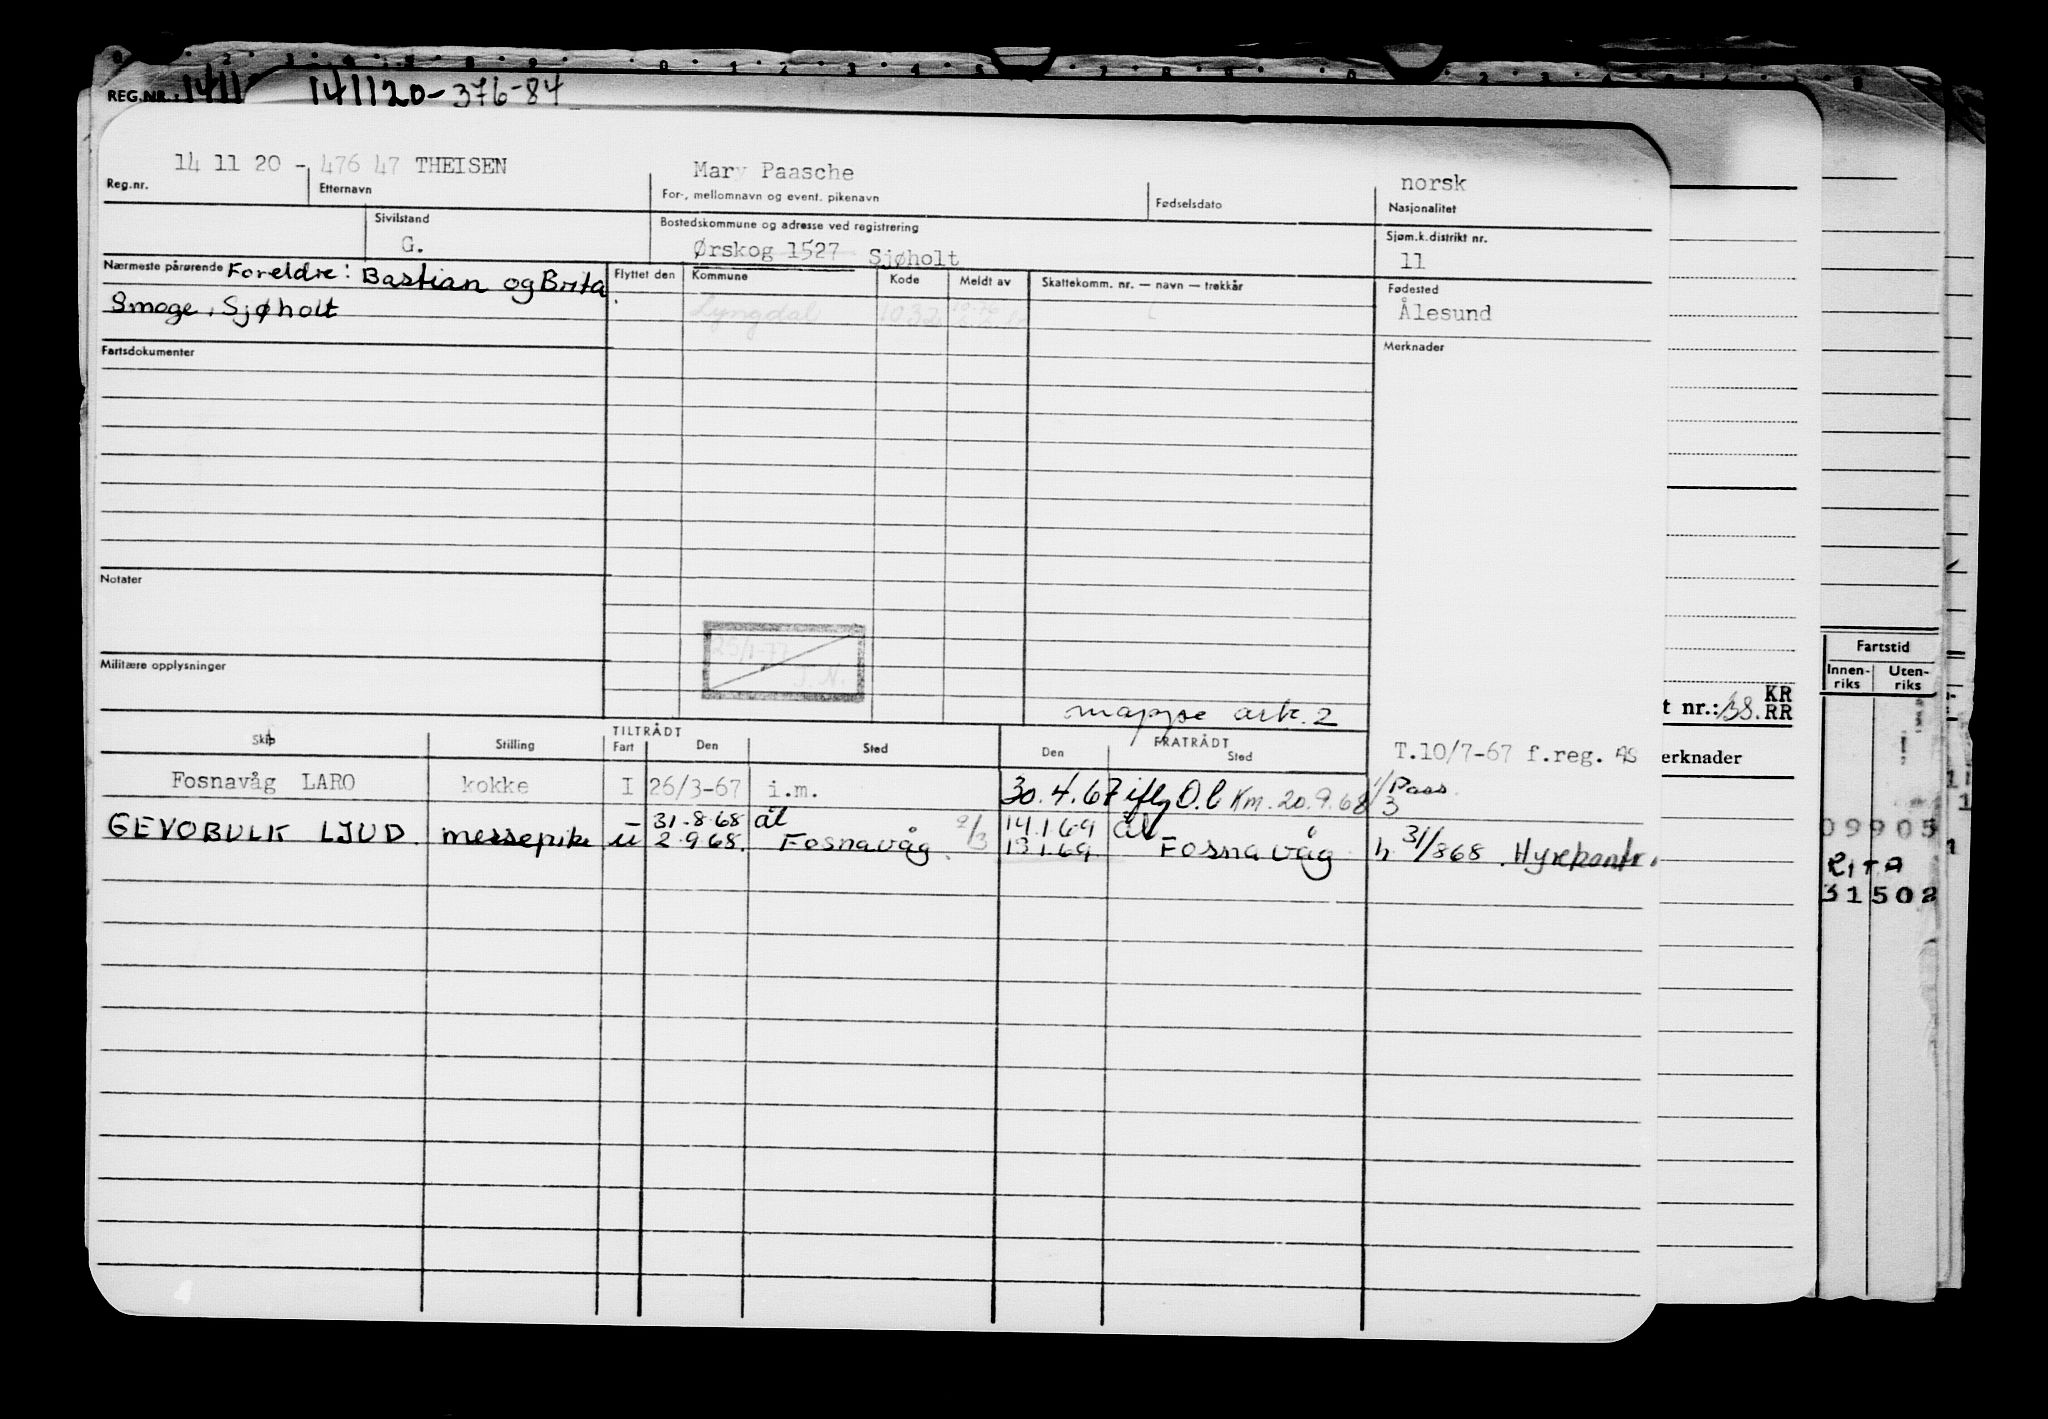 REG.NR.: 1411 141120-376-84
14 11 20 - 476 47 THEISEN Mary Paasche norsk
Reg.nr. Etternavn For-, mellomnavn og event. pikenavn Fødselsdato Nasjonalitet
Sivilstand Bostedskommune og adresse ved registrering Sjøm.k.distrikt nr.
G. Ørskog 1527 Sjøholt 11
Nærmeste pårørende Foreldre: Bastian og Brita Flyttet den Kommune Kode Meldt av Skattekomm. nr. — navn — trekkår Fødested
Smoge, Sjøholt Lyngdal 1032 Ålesund
Fartsdokumenter Merknader
Notater
25/1-77
J.N.
Militære opplysninger
mappe ark. 2
t nr.: 138. KR RR
Fartstid
Innen-riks Uten-riks
Skip Stilling TILTRÅDT Fart Den Sted FRATRÅDT Den Sted
T.10/7-67 f.reg. AS
erknader
Fosnavåg LARO kokke I 26/3-67 i.m. 30.4.67 iflg O.b Km. 20.9.68 1/3 Pass.
31.8.68 ål 2/3 14.1.69 ål
GEVOBULK LJUD. messepike u 2.9.68. Fosnavåg. 13.1.69. Fosnavåg h 31/868. Hyrekontr.
09905
RITA
31502